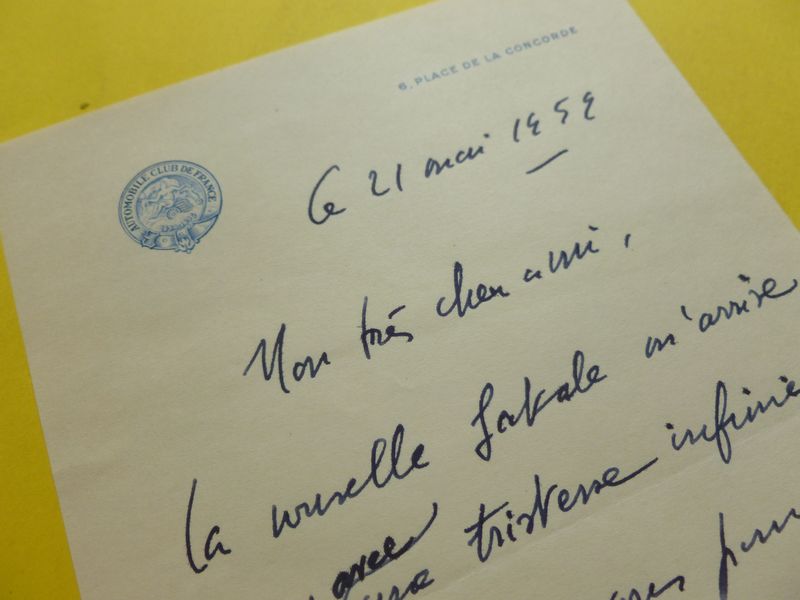 6, PLACE DE LA CONCORDE
AUTOMOBILE CLUB DE FRANCE
Le 21 mai 1959
Mon très cher ami,
La nouvelle fatale m'arrive
avec
une tristesse infinie